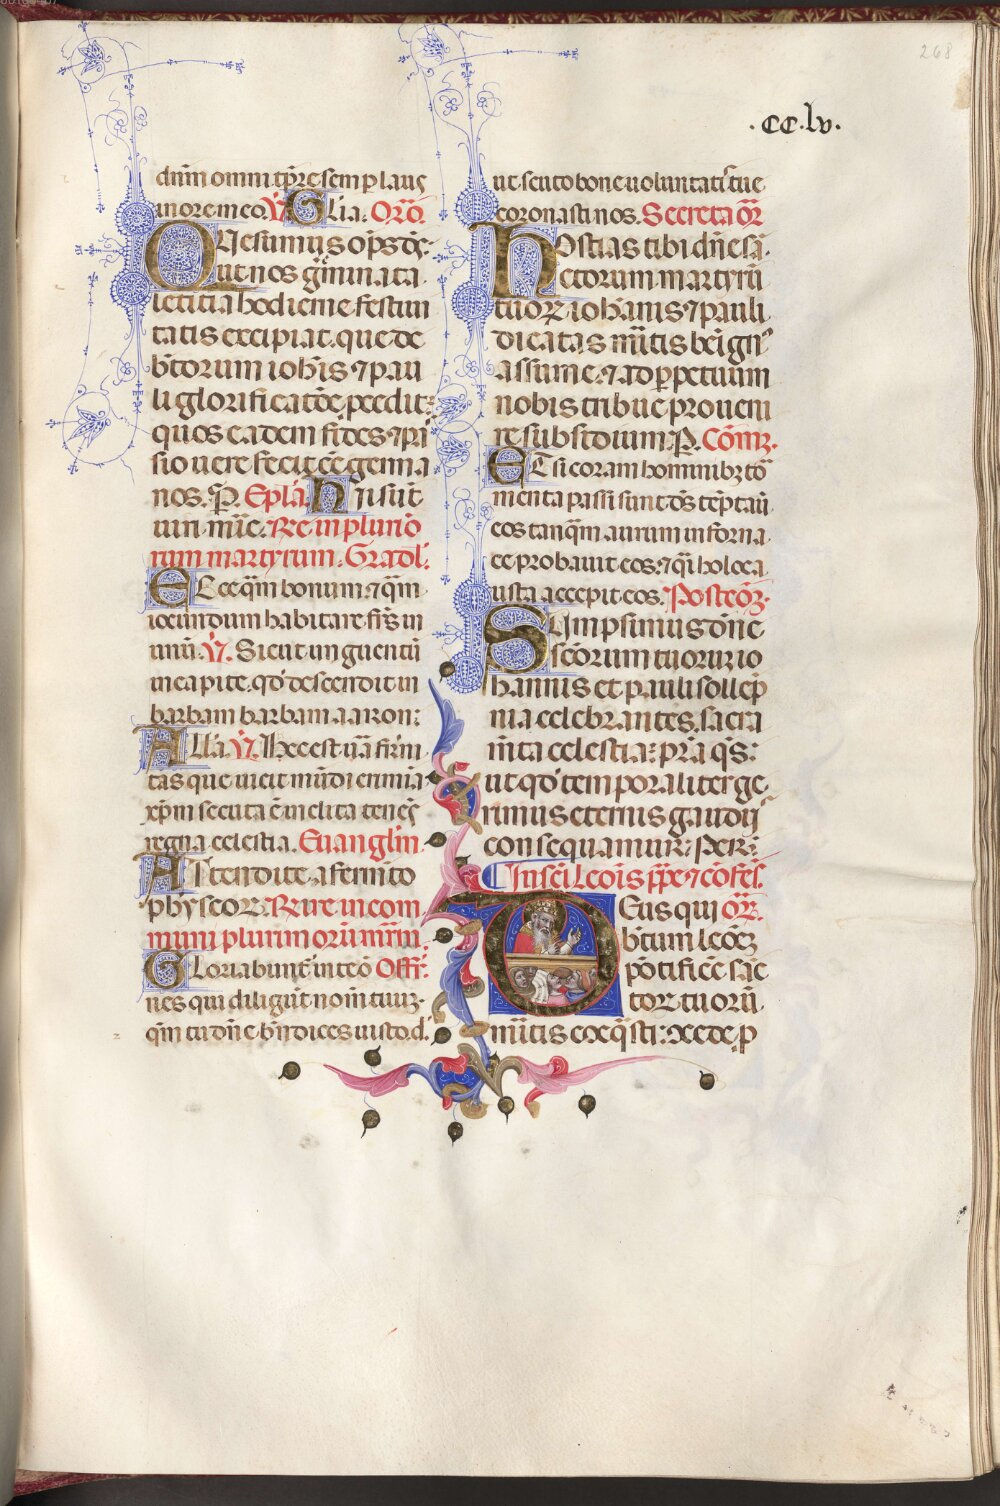 268
.cc.lv.
dnm omni tpre semp laus
in ore meo. V. Glia. Oro.
Quesumus ops ds:
ut nos gemina ta
leticia hodierne festiui
tatis excipiat. que de
btorum iohis ⁊ pau
li glorificatõe pcedit:
quos eadem fides ⁊ pa
sio uere fecit eē germa
nos. P. Epla. Hi sūt
uiri mie. Re. in plurio
rum martyrum. Gradl.
Ecce qm bonum ⁊ qm
iocundum habitare frēs in
unū. V. Sicut unguentū
in capite. qd descendit in
barbam barbam aaron:
Alla. V. Hec est uā frni
tas que uicit mūdi crimia
xpm secuta ē inclita tenēs
regna celestia. Euanglm.
Attendite a fermto
physeor. Rire in com
muni plurimorū mrm
Gloriabunt in teo Offi:
nes qui diligūt nom tuuz.
qm tu dne bndices iusto. d.
ut scuto bone uoluntatis tue
coronasti nos. Secreta or
Hostias tibi dne sā
ctorum martyrū
tuorz iohanis ⁊ pauli
dicatas mitis benign
assume: ⁊ ad perpetuum
nobis tribue proueni
re subsidium. P. Cōmz.
Et si coram hominibz to
menta passi sunt ds tēptau
eos tanqm aurum in forna
ce probauit eos: ⁊ qi holoca
usta accepit eos. Postcōz.
Sumpsimus dne
scorum tuoruz io
hannis et pauli sollep
nia celebrantes. sacra
mta celestia: pra qs:
ut qd temporaliter ge
rimus eternis gaudij
consequamur. Per.
In sci leois ppe ⁊ cōfes.
Deus qui or.
btum leonez
pōtificē sāc
tor tuorū
mitis coeqsti: xcede. p